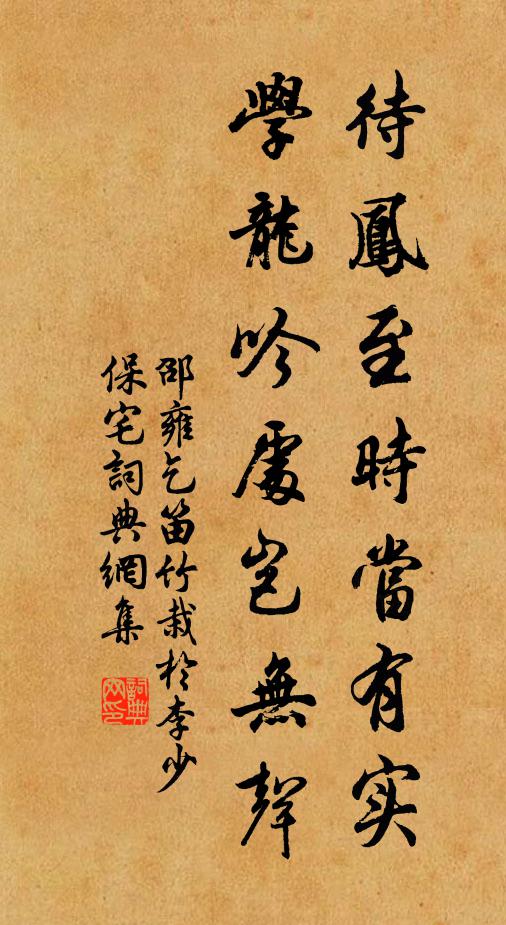 待鳳至時當有实
學龍吟處岂無聲
邵雍乞笛竹栽於李少
保宅詞典網集
詞典网印